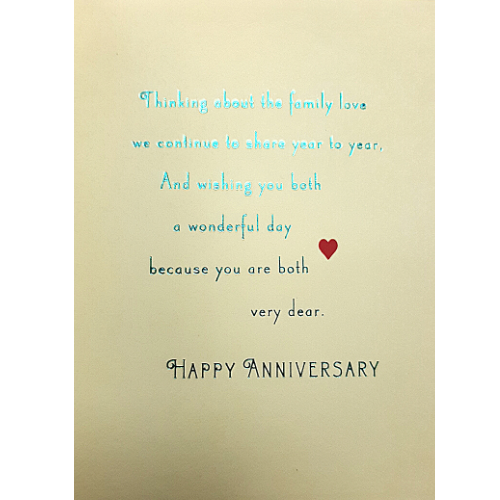 Thinking about the family love
we continue to share year to year.
And wishing you both
a wonderful day
because you are both
very dear.
HAPPY ANNIVERSARY